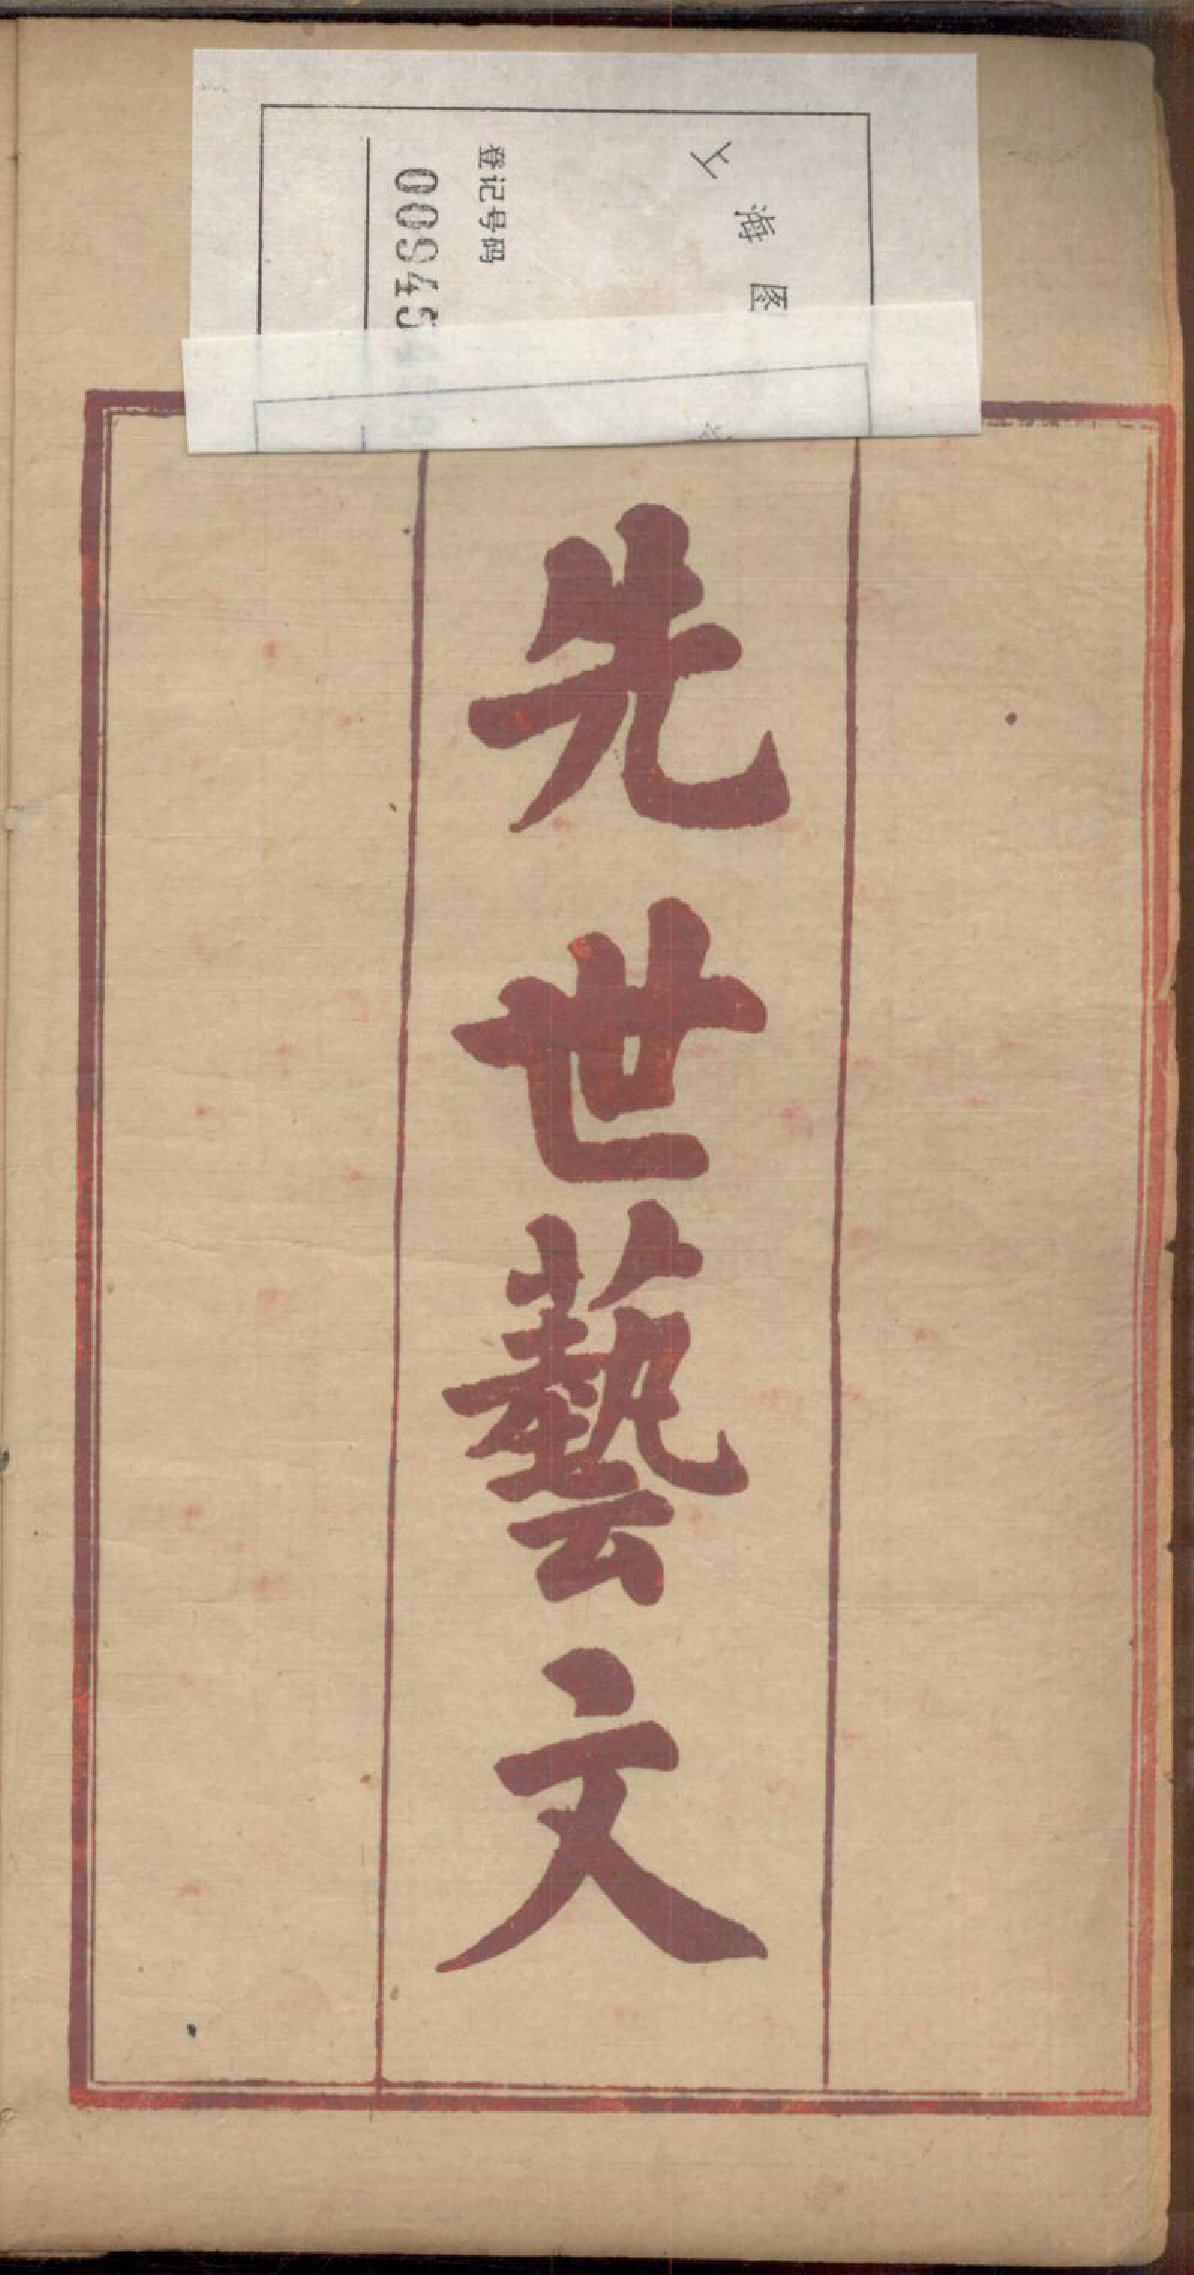 上海图
登记号码
00945
先世藝文